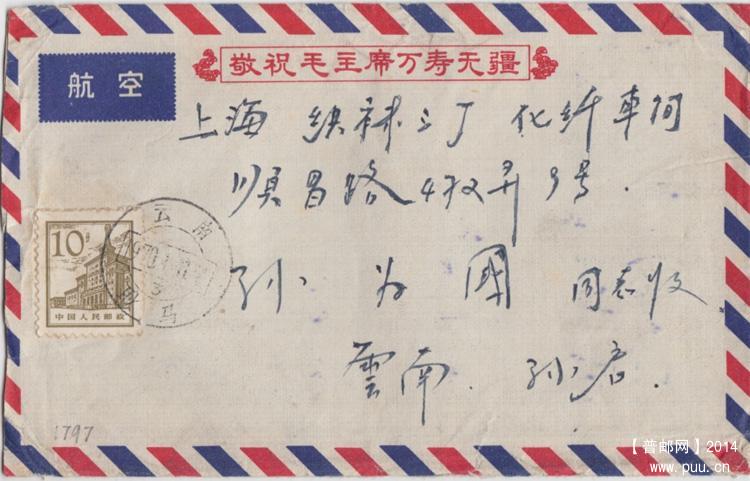 敬祝毛主席万寿无疆
航空
上海 织袜三厂 化纤车间
顺昌路 弄9号.
孙为國 同志收
雲南. 孙
10分
中国人民邮政
云南
1970.1
马
1797
【普邮网】2014
www.puu.cn